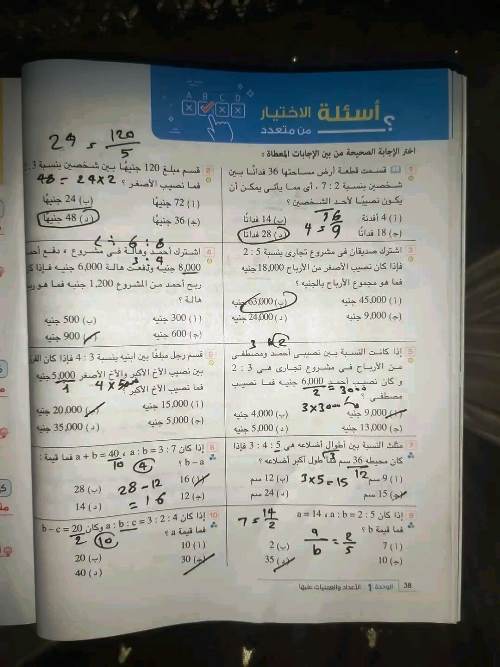 A B C D
؟ أسئلة الاختيار
من متعدد
اختر الإجابة الصحيحة من بين الإجابات المعطاة :
1 قسمت قطعة أرض مساحتها 36 فدانًا بين
شخصين بنسبة 2 : 7 ، أى مما يأتى يمكن أن
يكون نصيبًا لأحد الشخصين ؟
(أ) 4 أفدنة
(ب) 14 فدانًا
(ج) 18 فدانًا
(د) 28 فدانًا
36
4 = 9
24 = 120
5
2 قسم مبلغ 120 جنيهًا بين شخصين بنسبة 3 :
فما نصيب الأصغر ؟
48 = 24 x 2
(أ) 72 جنيهًا
(ب) 24 جنيهًا
(ج) 36 جنيهًا
(د) 48 جنيهًا
3 اشترك صديقان فى مشروع تجارى بنسبة 5 : 2
فإذا كان نصيب الأصغر من الأرباح 18,000 جنيه
فما هو مجموع الأرباح بالجنيه ؟
(أ) 45,000 جنيه
(ب) 63,000 جنيه
(ج) 9,000 جنيه
(د) 24,000 جنيه
6 : 8
3 : 4
4 اشترك أحمد وهالة فى مشروع ، دفع أحمد
8,000 جنيه ودفعت هالة 6,000 جنيه فإذا كان
ربح أحمد من المشروع 1,200 جنيه فما هو ربح
هالة ؟
(أ) 300 جنيه
(ب) 500 جنيه
(ج) 600 جنيه
(د) 900 جنيه
3 2
5 إذا كانت النسبة بين نصيبى أحمد ومصطفى
من الأرباح فى مشروع تجارى هى 3 : 2
وكان نصيب أحمد 6,000 جنيه فما نصيب
مصطفى ؟
2 = 3000
3 x 3000
(أ) 9,000 جنيه
(ب) 4,000 جنيه
(ج) 13,000 جنيه
(د) 7,000 جنيه
6 قسم رجل مبلغًا بين ابنيه بنسبة 3 : 4 فإذا كان الفرق
بين نصيب الأخ الأكبر والأخ الأصغر 5,000 جنيه
فما نصيب الأخ الأكبر
1
4 x 5000
(أ) 15,000 جنيه
(ب) 20,000 جنيه
(ج) 5,000 جنيه
(د) 35,000 جنيه
7 مثلث النسبة بين أطوال أضلاعه هى 5 : 4 : 3 فإذا
كان محيطه 36 سم فما طول أكبر أضلاعه ؟
3
12
3 x 5 = 15
(أ) 9 سم
(ب) 12 سم
(ج) 15 سم
(د) 24 سم
8 إذا كان a : b = 3 : 7 ، a + b = 40 فما قيمة :
b - a ؟
10
4
28 - 12
= 16
(أ) 16
(ب) 28
(ج) 12
(د) 14
9 إذا كان a = 14 ، a : b = 2 : 5
فما قيمة b ؟
7 = 14
2
a = 2
b 5
(أ) 7
(ب) 2
(ج) 10
(د) 35
10 إذا كان a : b : c = 3 : 2 : 4 وكان b - c = 20
فما قيمة a ؟
2
10
(أ) 10
(ب) 20
(ج) 30
(د) 40
38 الوحدة 1 الأعداد والعمليات عليها